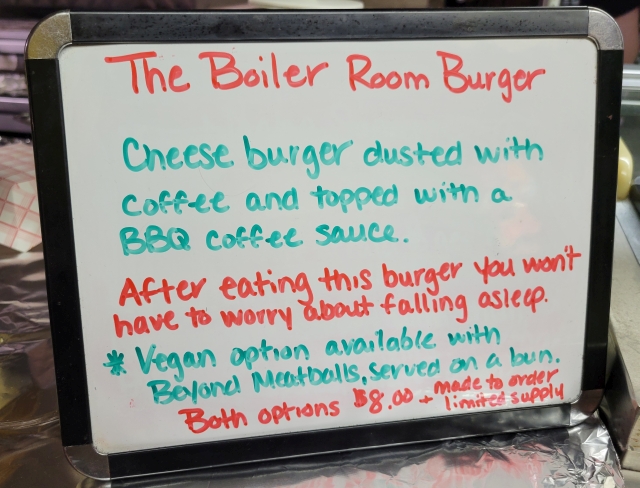 The Boiler Room Burger
Cheese burger dusted with
coffee and topped with a
BBQ coffee sauce.
After eating this burger you won't
have to worry about falling asleep.
* Vegan option available with
Beyond Meatballs, served on a bun.
Both options $8.00 + made to order
limited supply